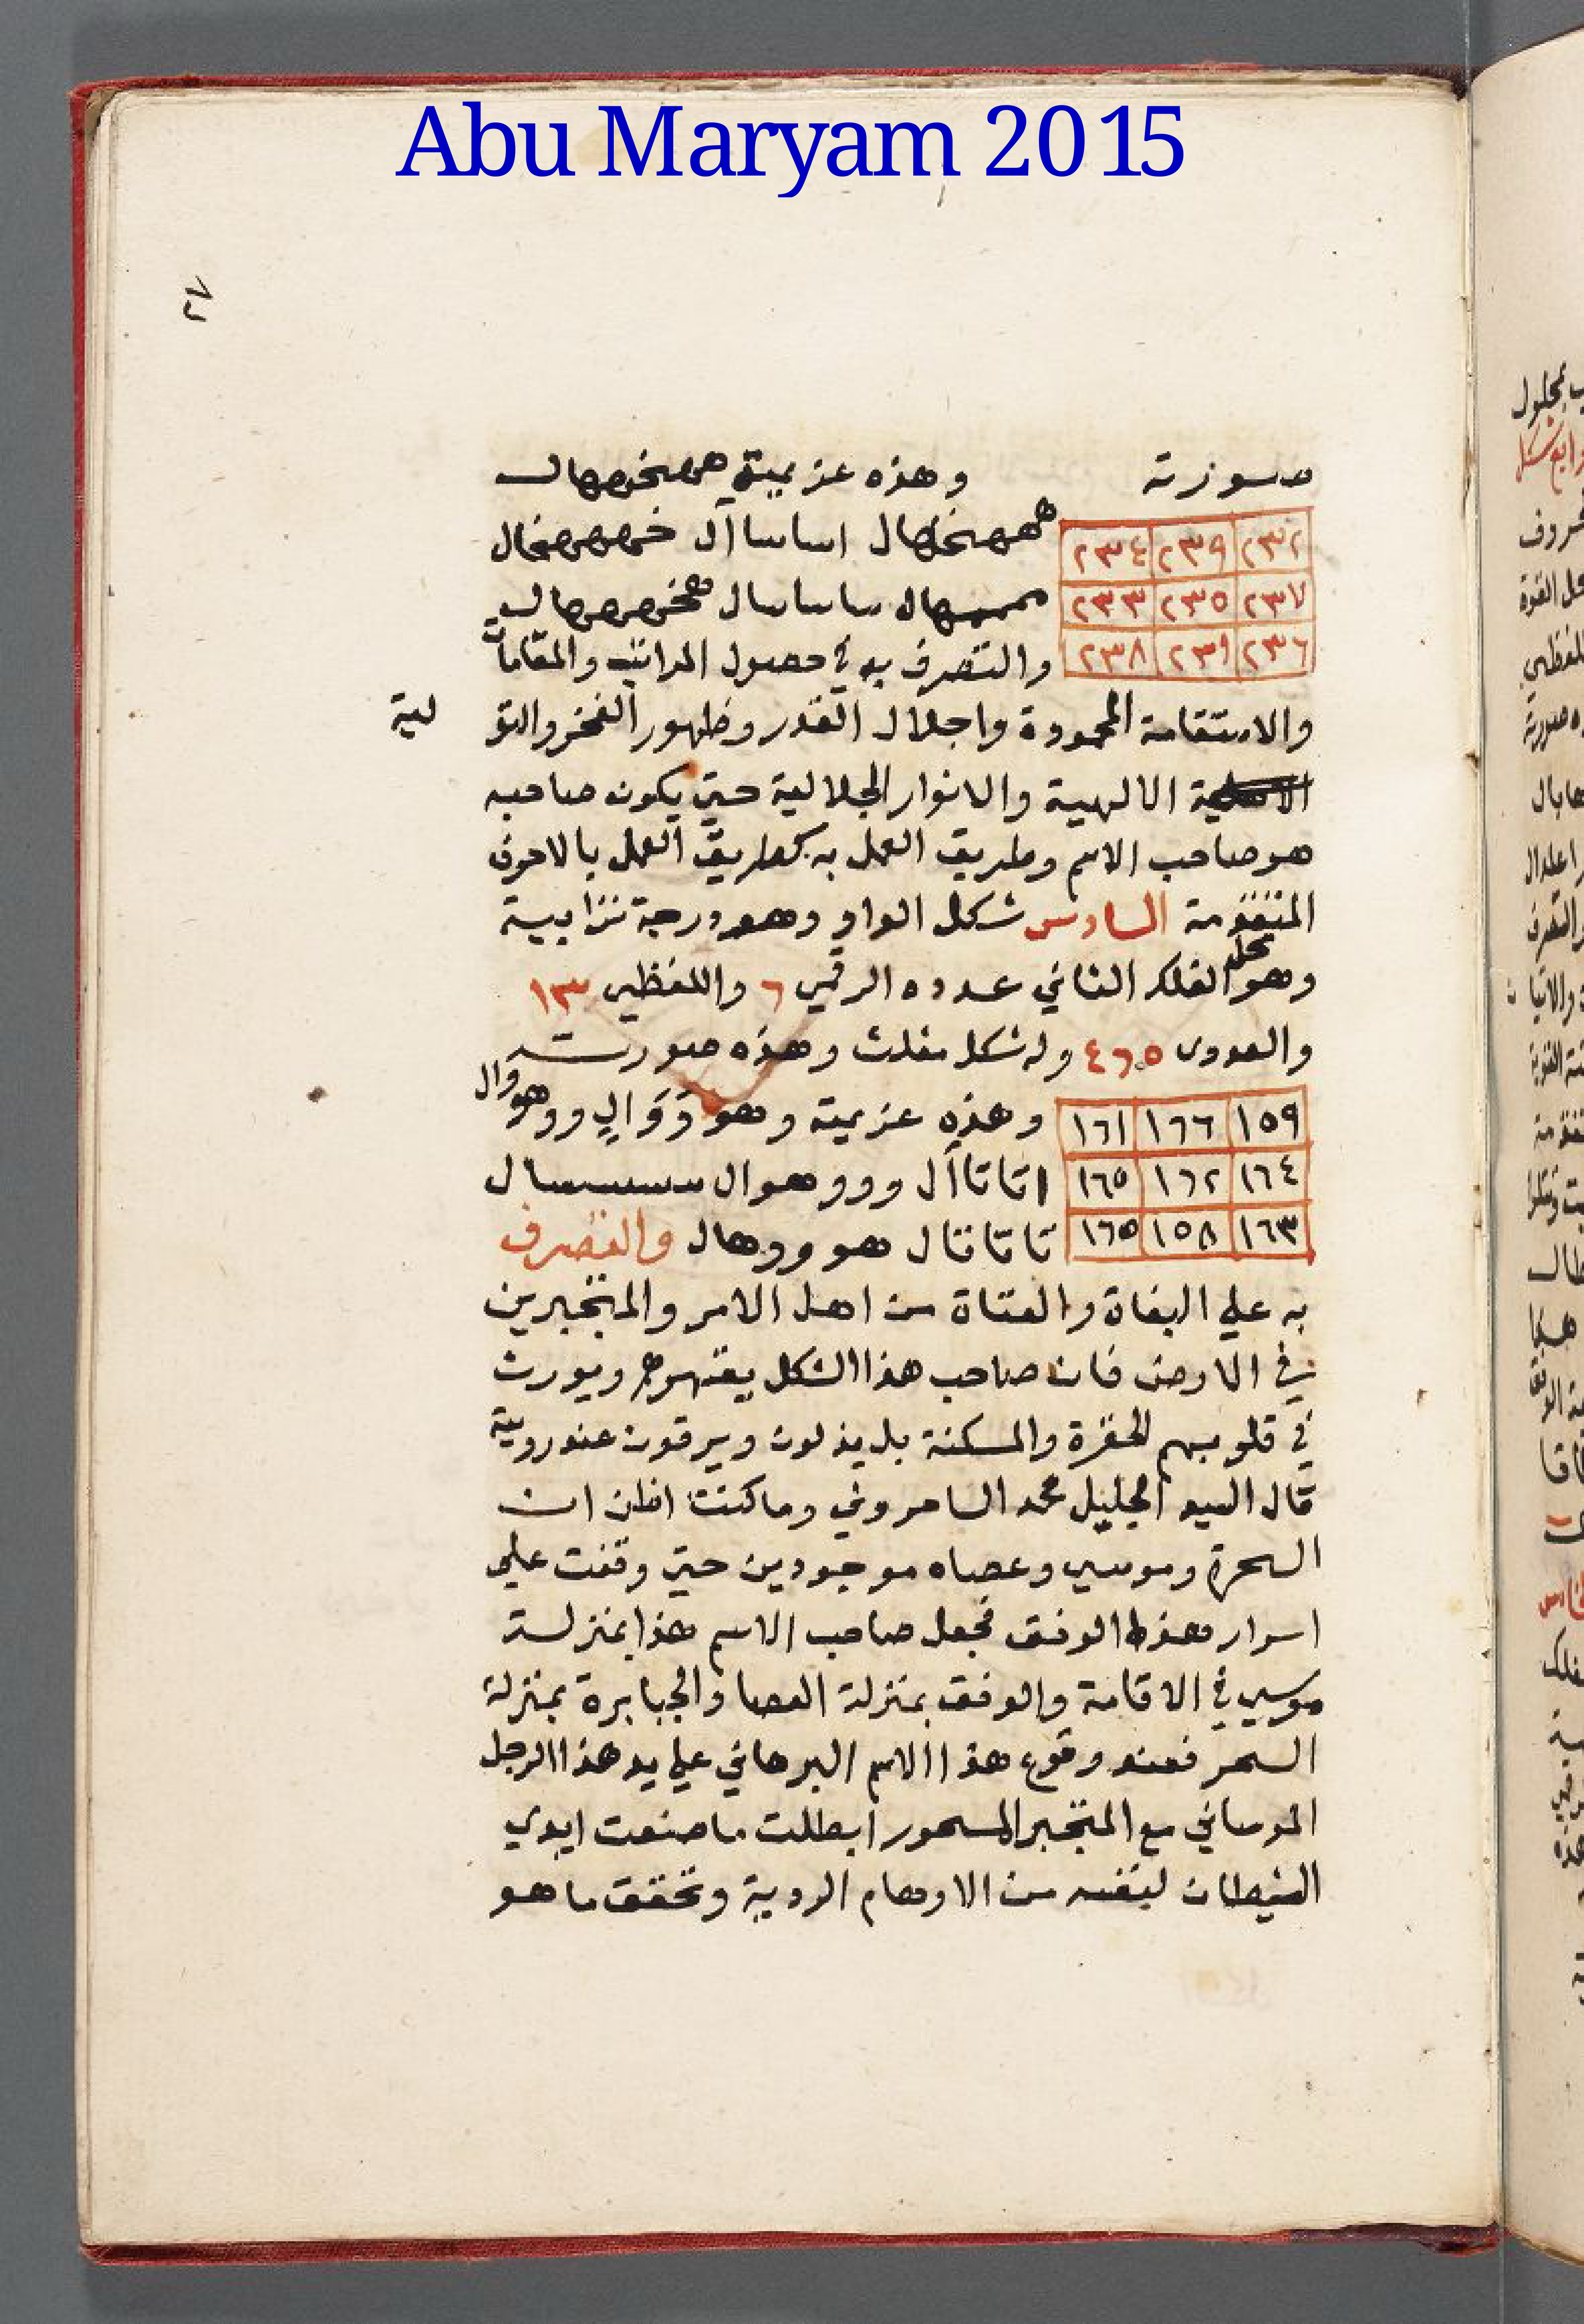 Abu Maryam 2015
٢٧
صورته وهذه عزيمته
٢٣٢ ٢٣٩ ٢٣٤
٢٣٧ ٢٣٥ ٢٣٣
٢٣٦ ٢٣١ ٢٣٨
والتصرف به في حصول المراتب والمقامات
والاستقامة المحمودة واجلال القدر وظهور الفخر والتو لية
الالهية والانوار الجلالية حتي يكون صاحبه
هو صاحب الاسم وطريق العمل به كطريق العمل بالاحرف
المتقدمة السادس شكل الواو وهو درجة ترابية
وهو محل الفلك الثاني عدده الرقمي ٦ واللفظي ١٣
والعددي ٤٦٥ وله شكل مثلث وهذه صورته
١٥٩ ١٦٦ ١٦١
١٦٤ ١٦٢ ١٦٥
١٦٣ ١٥٨ ١٦٥
وهذه عزيمته وهو ووال ووهووال
اتاتاآل وووهوال سسسسال
تاتاتال هوووهال والتصرف
به علي البغاة والعتاة من اهل الامر والمتجبرين
في الارض فان صاحب هذا الشكل يقهرهم ويورث
في قلوبهم الحقرة والمسكنة بل يذلون ويرقون عند رويته
قال السيد الجليل محمد السامروني وما كنت اظن ان
السحرة وموسي وعصاه موجودين حتي وقفت علي
اسرار هذا الوفق فجعل صاحب الاسم هذا بمنزلة
موسي في الاقامة والوفق بمنزلة العصا والجبابرة بمنزلة
السحر فعند وقوع هذا الاسم البرهاني علي يد هذا الرجل
الموساني مع المتجبر المسحور ابطلت ما صنعت ايدي
الشيطان لنفسه من الاوهام الردية وتحقق ما هو